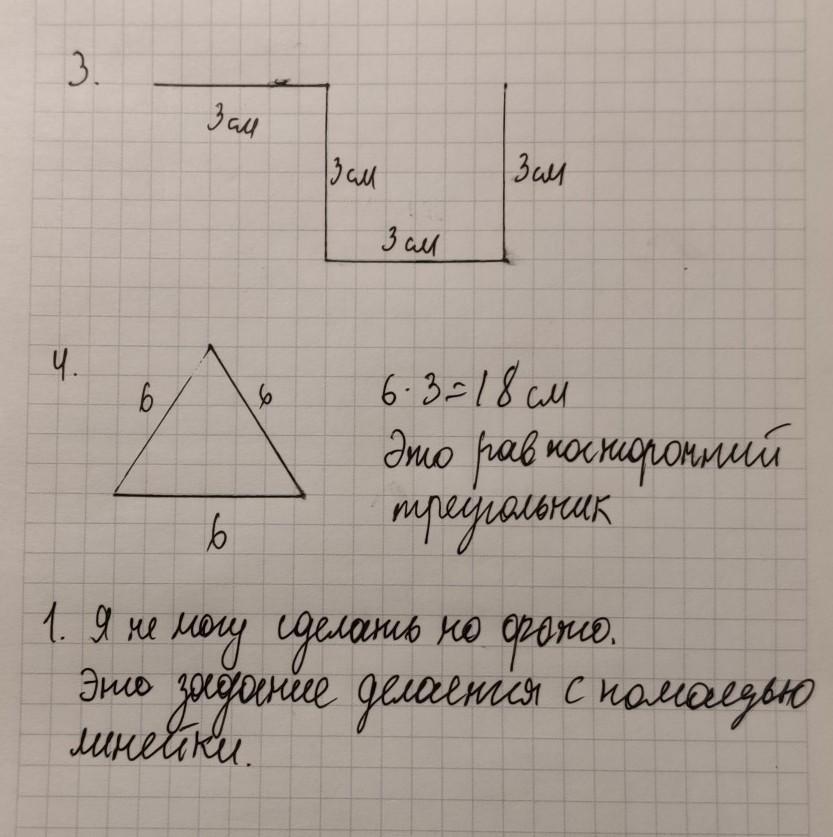 3.
3 см
3 см
3 см
3 см
4.
6
6
6
6 · 3 = 18 см
Это равносторонний
треугольник
1. Я не могу сделать по фото.
Это задание делается с помощью
линейки.